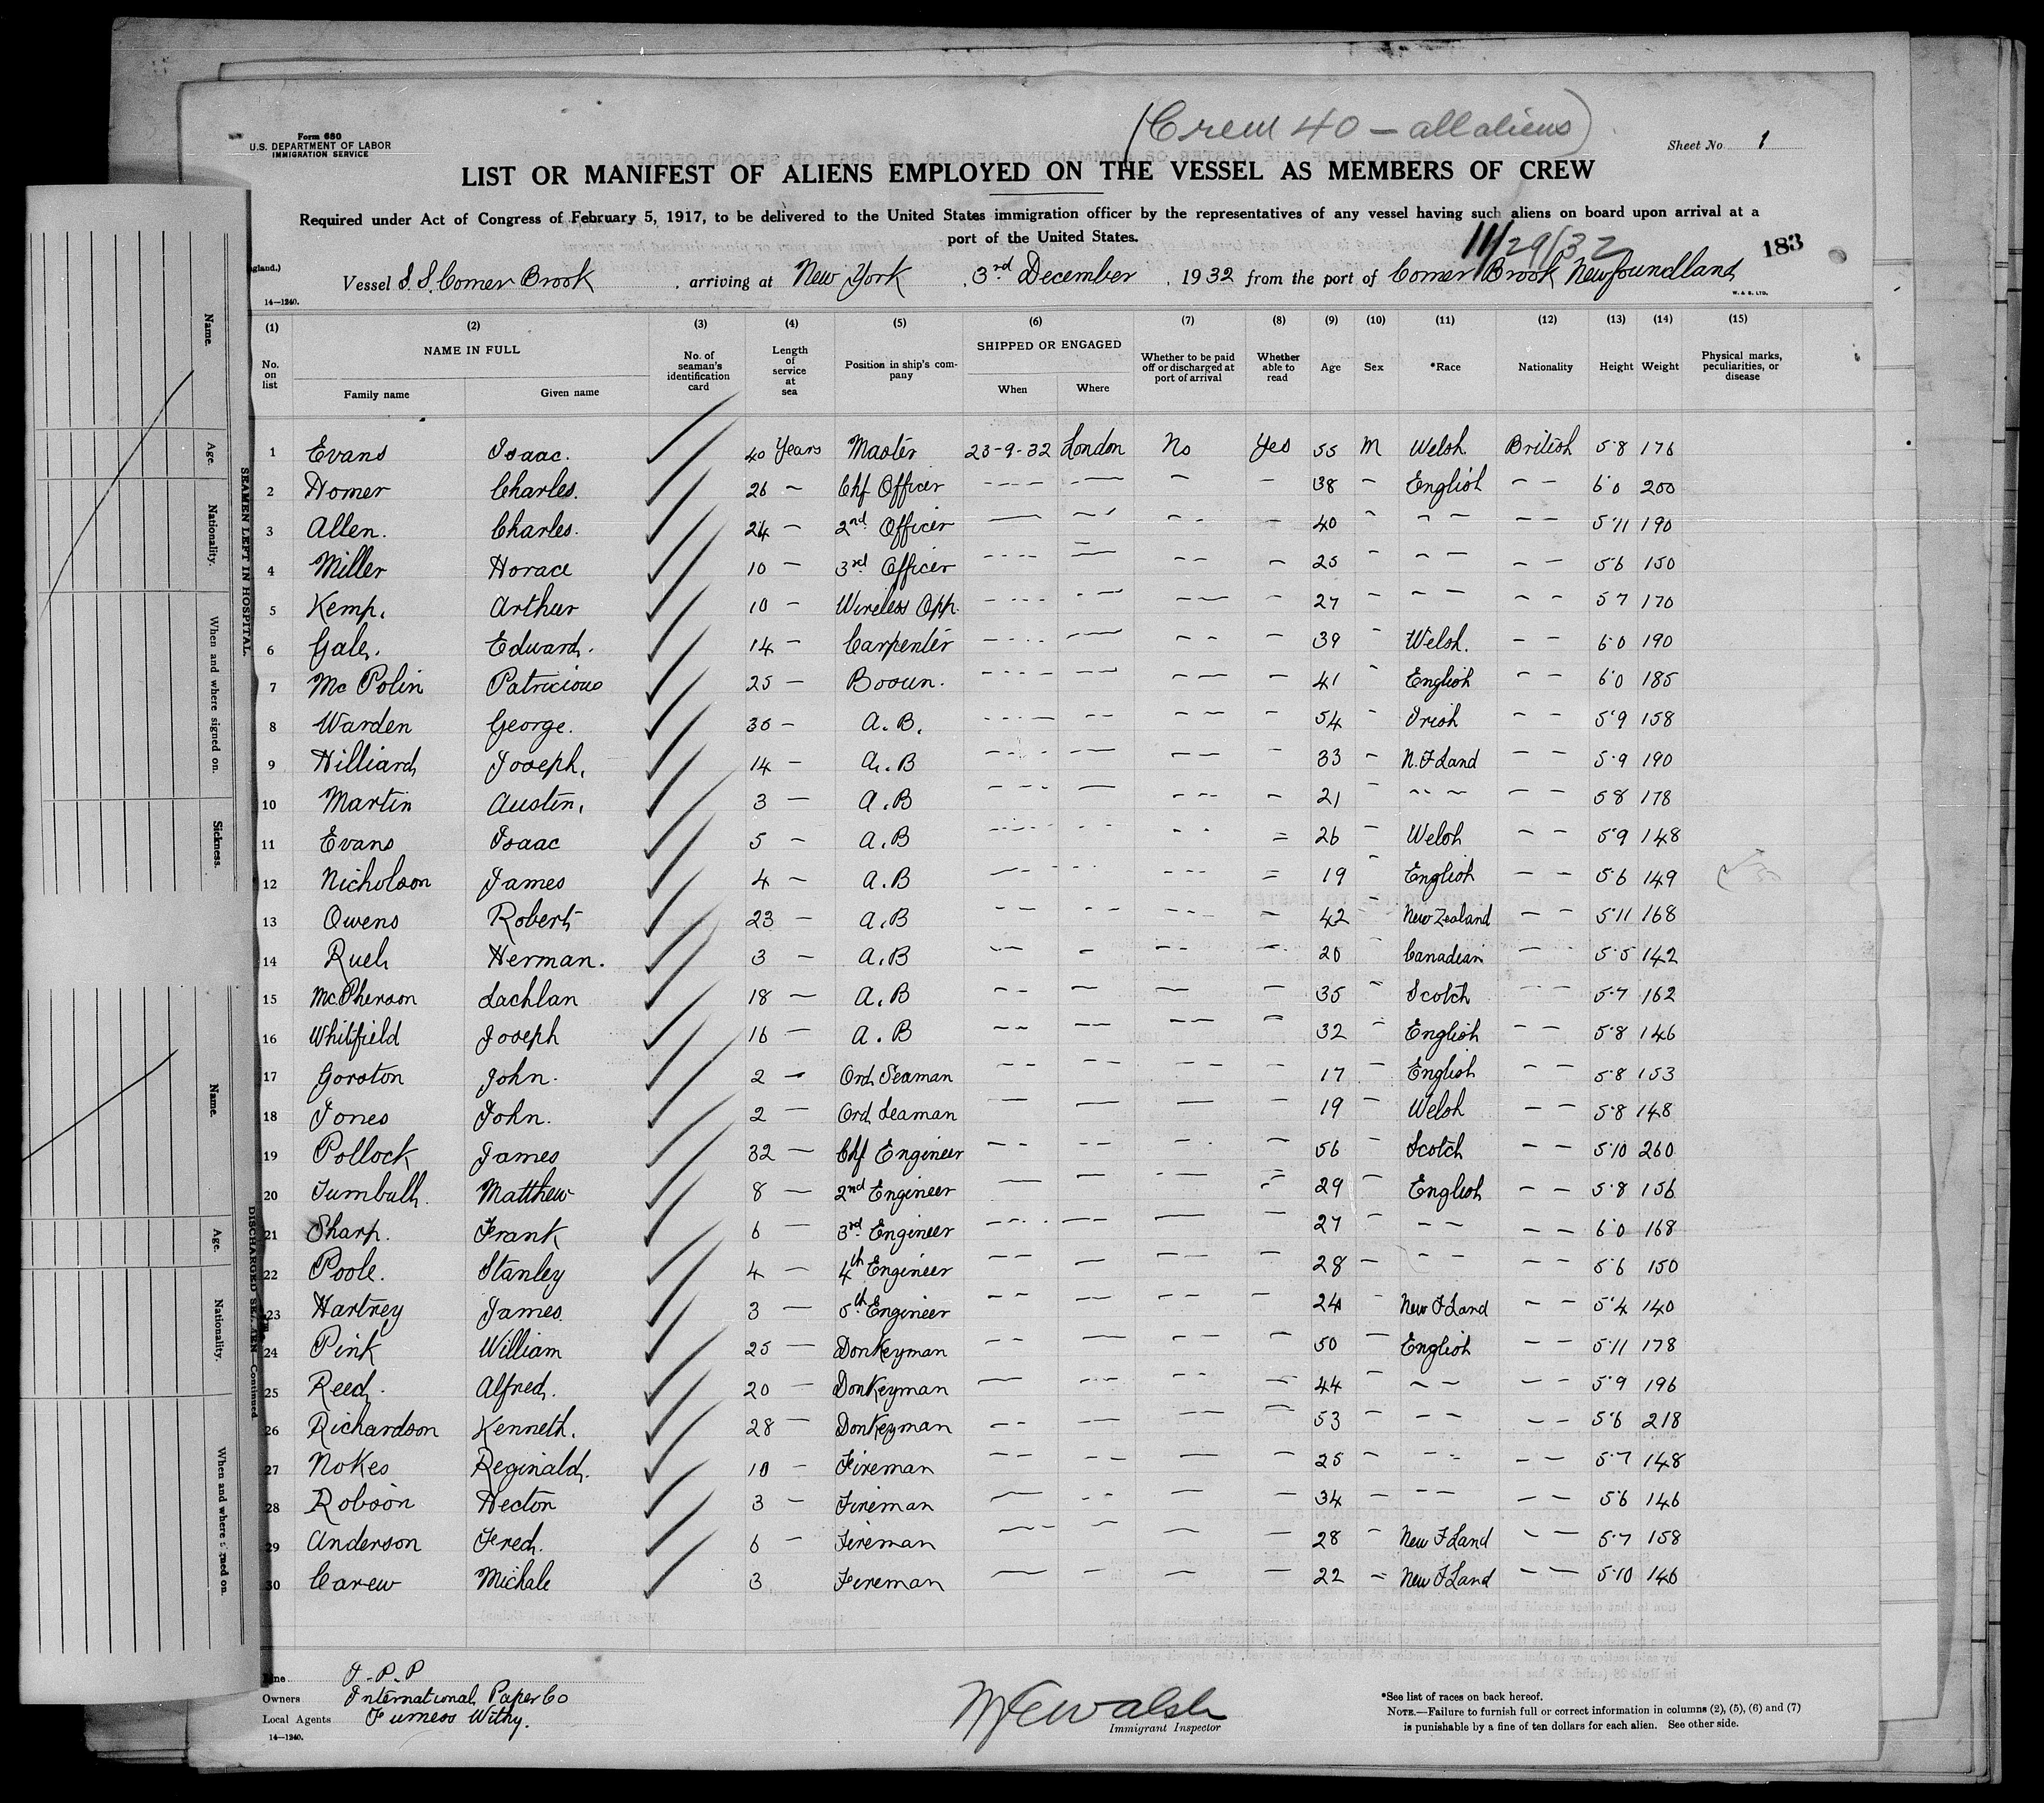 (Crew 40 — all aliens)
Form 680
U.S. DEPARTMENT OF LABOR
IMMIGRATION SERVICE
Sheet No 1
LIST OR MANIFEST OF ALIENS EMPLOYED ON THE VESSEL AS MEMBERS OF CREW
Required under Act of Congress of February 5, 1917, to be delivered to the United States immigration officer by the representatives of any vessel having such aliens on board upon arrival at a
port of the United States.
11/29/32
183
gland.)
Vessel S.S. Corner Brook, arriving at New York, 3rd December, 1932 from the port of Corner Brook Newfoundland
14—1240.
W. & S. LTD.
(1) (2) (3) (4) (5) (6) (7) (8) (9) (10) (11) (12) (13) (14) (15)
No. on list NAME IN FULL Family name Given name No. of seaman's identification card Length of service at sea Position in ship's company SHIPPED OR ENGAGED When Where Whether to be paid off or discharged at port of arrival Whether able to read Age Sex *Race Nationality Height Weight Physical marks, peculiarities, or disease
1 Evans Isaac. 40 Years Master 23-9-32 London No Yes 55 M Welsh British 5'8 176
2 Homer Charles. 26 — Chf Officer — — — — 38 — English — — 6'0 200
3 Allen. Charles. 24 — 2nd Officer — — — — 40 — — — — — 5'11 190
4 Miller Horace 10 — 3rd Officer — — — — 25 — — — — — 5'6 150
5 Kemp. Arthur 10 — Wireless Opp. — — — — 27 — — — — — 5 7 170
6 Gale. Edward. 14 — Carpenter — — — — 39 — Welsh. — — 6'0 190
7 McPolin Patricious 25 — Bosun. — — — — 41 — English — — 6'0 185
8 Warden George. 36 — A.B. — — — — 54 — Irish — — 5'9 158
9 Hilliard Joseph. 14 — A.B — — — — 33 — N.F Land — — 5'9 190
10 Martin Austin. 3 — A.B — — — — 21 — — — — — 5 8 178
11 Evans Isaac 5 — A.B — — — = 26 — Welsh — — 5'9 148
12 Nicholson James 4 — A.B — — — = 19 — English — — 5'6 149
13 Owens Robert 23 — A.B — — — — 42 — New Zealand — — 5'11 168
14 Rueh Herman. 3 — A.B — — — — 20 — Canadian — — 5'5 142
15 McPherson Lachlan 18 — A.B — — — — 35 — Scotch — — 5'7 162
16 Whitfield Joseph 16 — A.B — — — — 32 — English — — 5'8 146
17 Gorston John. 2 — Ord Seaman — — — — 17 — English — — 5'8 153
18 Jones John. 2 — Ord Seaman — — — — 19 — Welsh — — 5'8 148
19 Pollock James 32 — Chf Engineer — — — — 56 — Scotch — — 5'10 260
20 Turnbull. Matthew 8 — 2nd Engineer — — — — 29 — English — — 5'8 156
21 Sharp. Frank 6 — 3rd Engineer — — — — 27 — — — — — 6'0 168
22 Poole. Stanley 4 — 4th Engineer — — — — 28 — — — — — 5'6 150
23 Hartrey James. 3 — 5th Engineer — — — — 24 — New F Land — — 5'4 140
24 Pink William 25 — Donkeyman — — — — 50 — English — — 5'11 178
25 Reed. Alfred. 20 — Donkeyman — — — — 44 — — — — — 5'9 196
26 Richardson Kenneth. 28 — Donkeyman — — — — 53 — — — — — 5'6 218
27 Nokes Reginald. 10 — Fireman — — — — 25 — — — — — 5'7 148
28 Robson Hector 3 — Fireman — — — — 34 — — — — — 5'6 146
29 Anderson Fred. 6 — Fireman — — — — 28 — New F Land — — 5'7 158
30 Carew Michale 3 Fireman — — — — 22 — New F Land — — 5'10 146
Line I.P.P
Owners International Paper Co
Local Agents Furness Withy.
14—1240.
Walsh
Immigrant Inspector
*See list of races on back hereof.
NOTE.—Failure to furnish full or correct information in columns (2), (5), (6) and (7)
is punishable by a fine of ten dollars for each alien. See other side.
SEAMEN LEFT IN HOSPITAL.
Name.
Age.
Nationality.
When and where signed on.
Sickness.
DISCHARGED SEAMEN—Continued
Name.
Age.
Nationality.
When and where signed on.